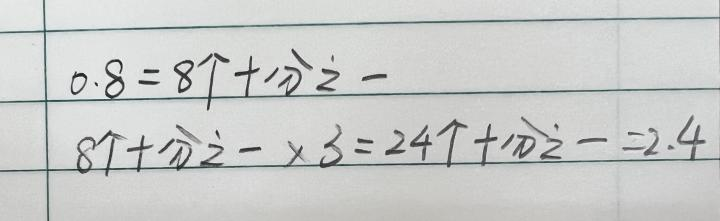 0.8=8个十分之一
8个十分之一×3=24个十分之一=2.4